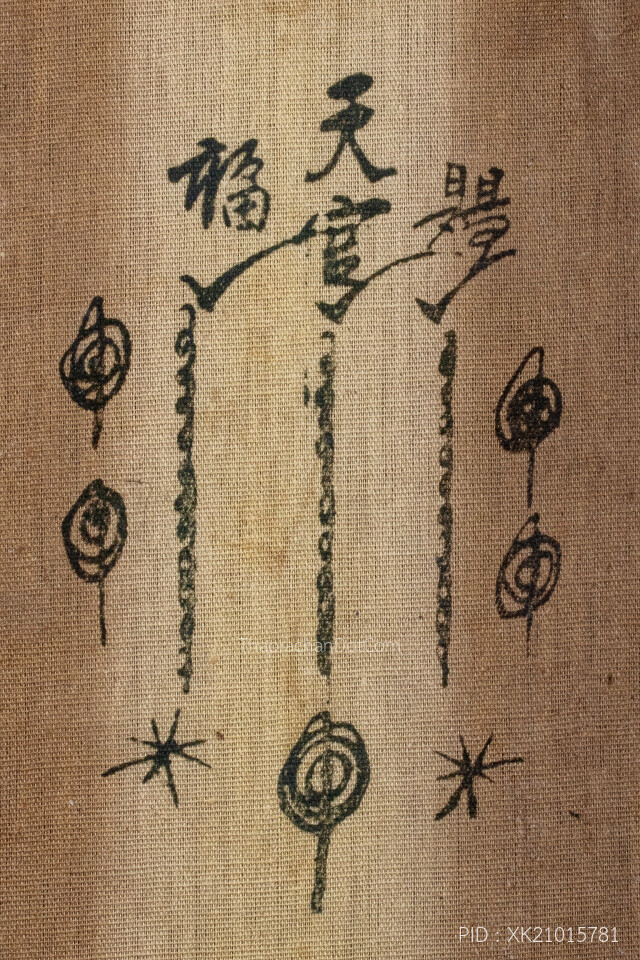 天官
福
ThaprachanDotCom
PID : XK21015781